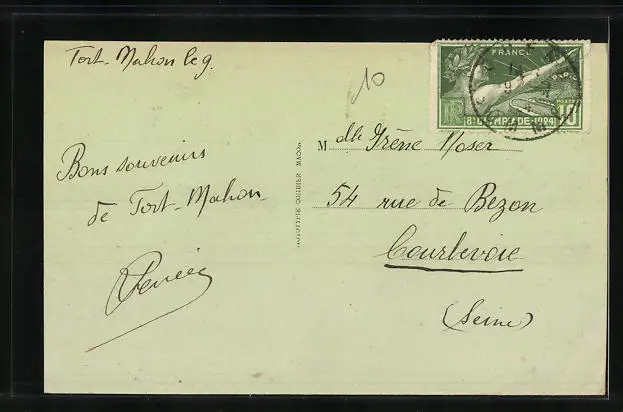 Fort-Mahon le 9.
10
FRANCE
PARIS
RF
POSTES
8e OLYMPIADE-1924
10
Mdlle Irène Moser
54 rue de Bezon
Courbevoie
(Seine)
Bons souvenirs
de Fort-Mahon
Renée
PHOTOTYPIE COMBIER MACON